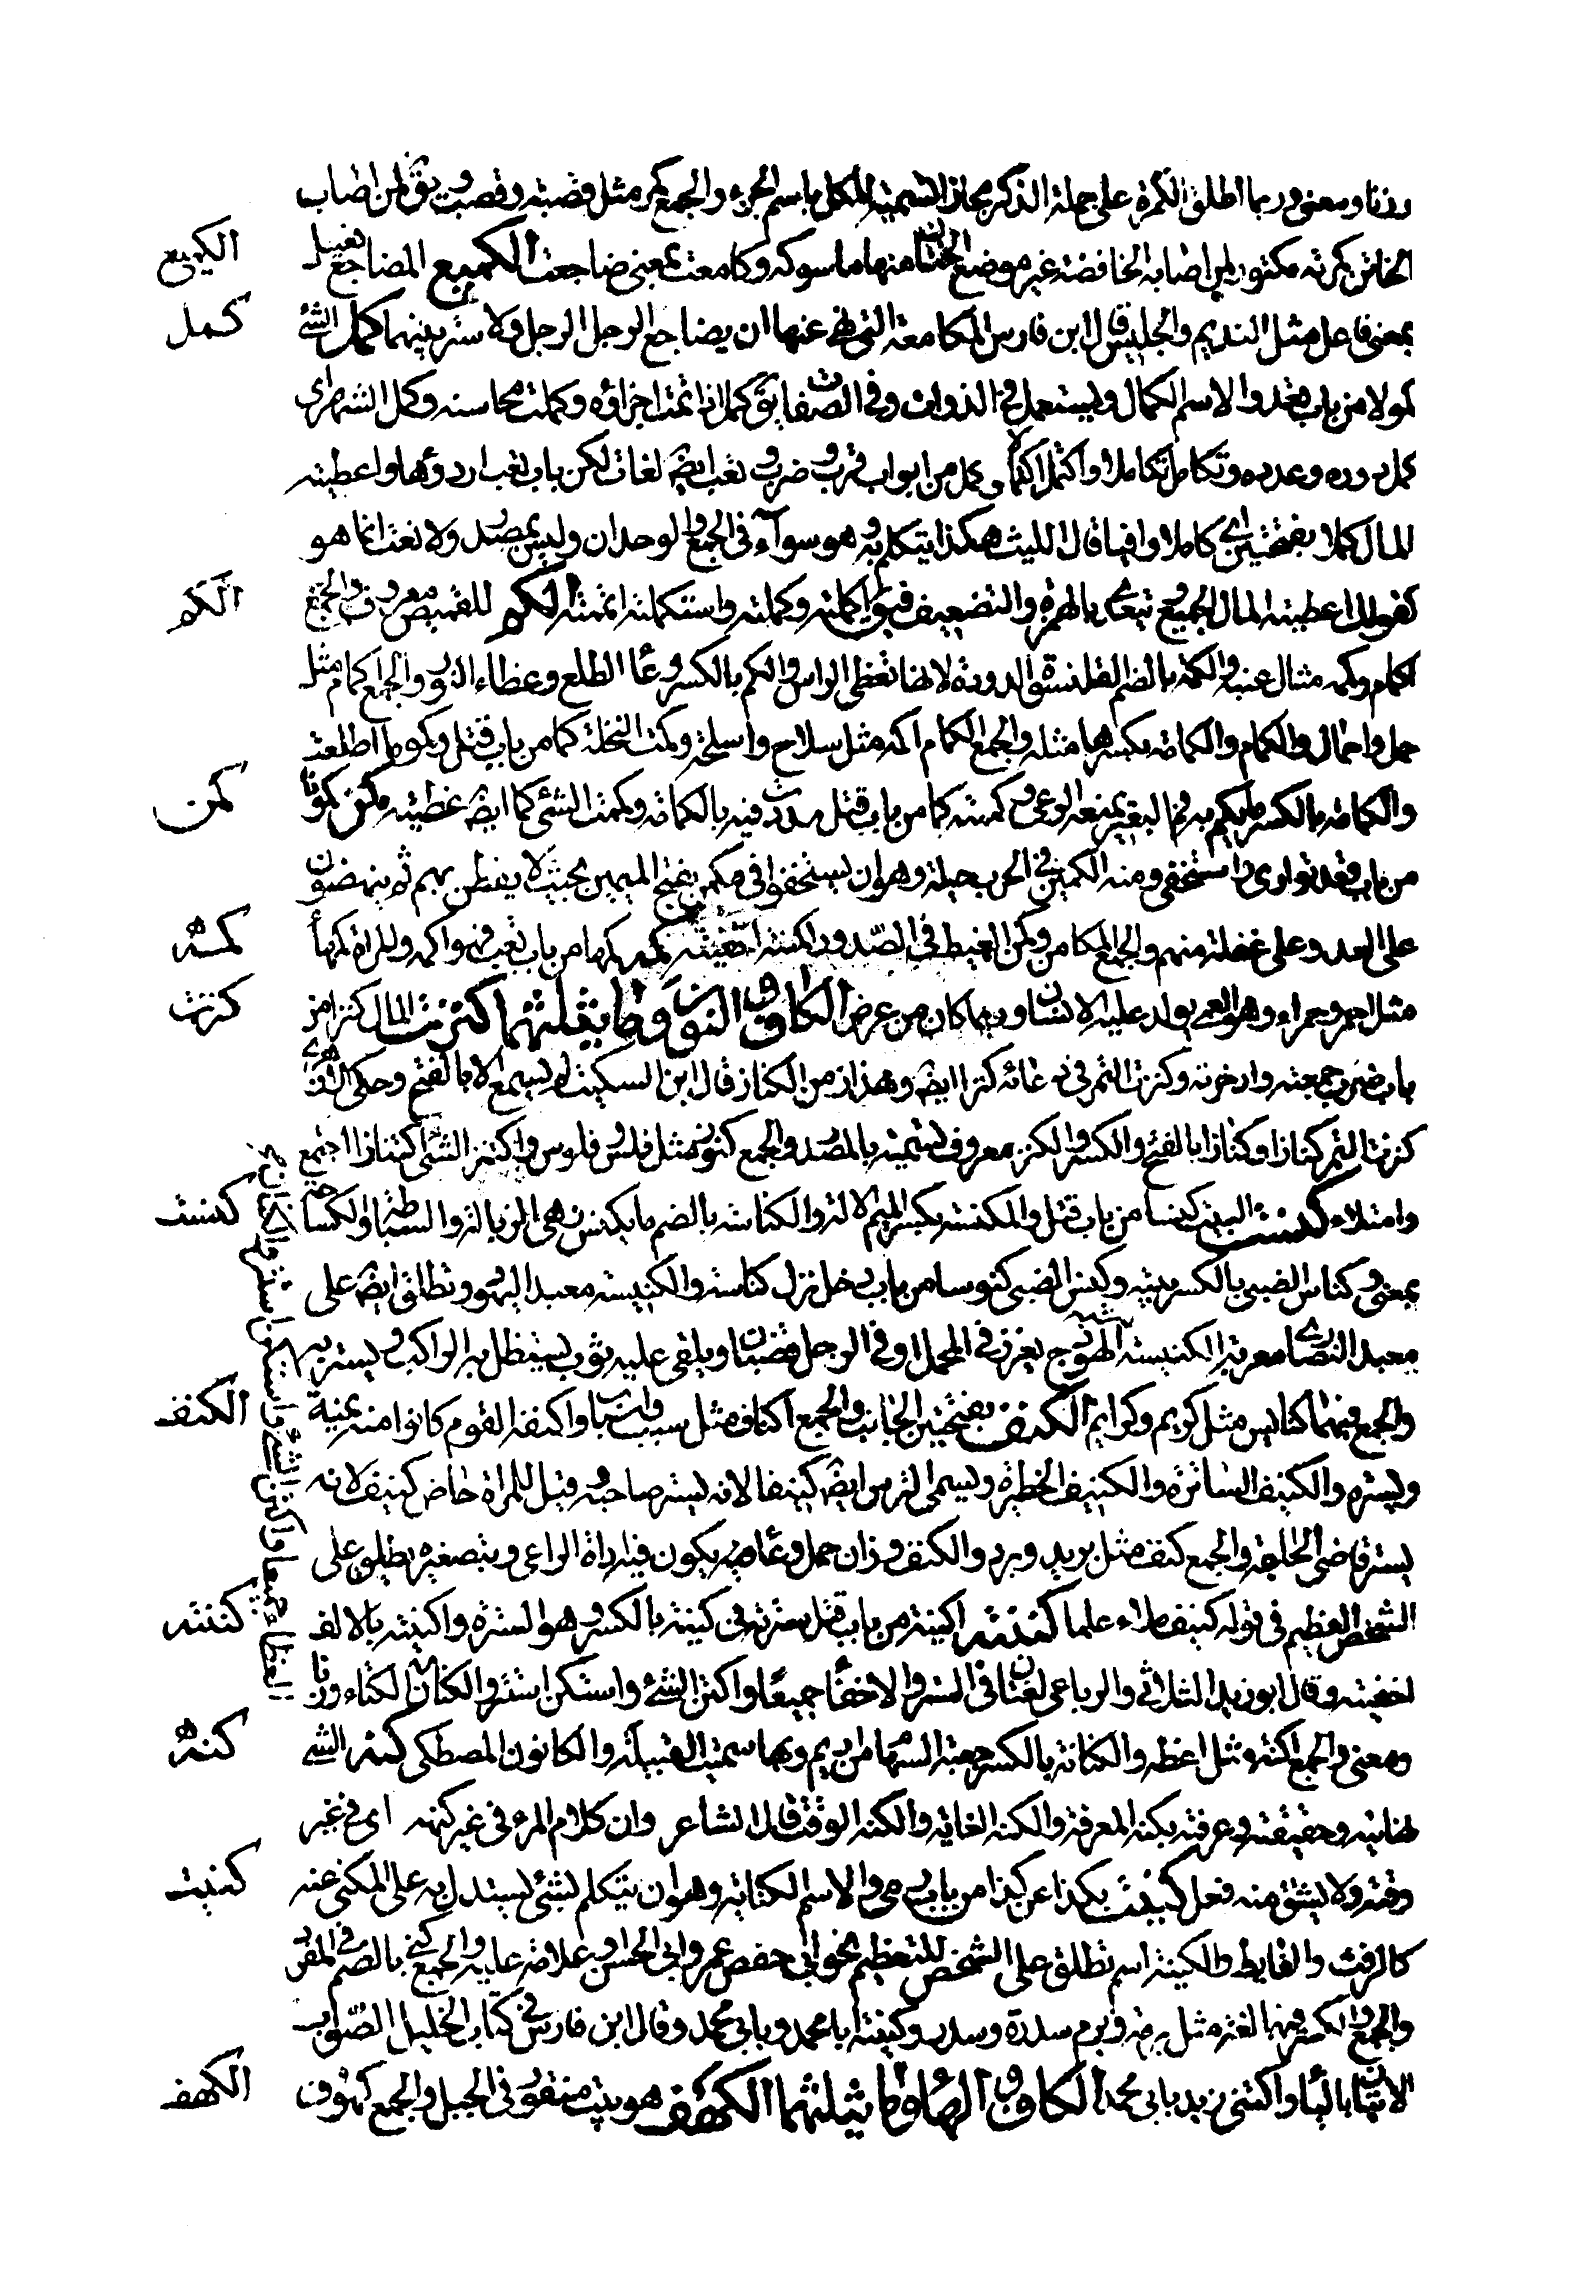 وزنا ومعنى وربما اطلق الكمرة على جملة الذكر مجازا تسمية للكل باسم الجزء والجمع كمر مثل قصبة وقصب ويق لمن اصاب
الخاتن كمرته مكمور ولمن اصابة الخافضة غير موضع الختان منها ماسوكه وكامعت بمعنى ضاجعت الكميع المضاجع فعيل
الكميع
بمعنى فاعل مثل النديم والجليس قال ابن فارس المكامعة التي نهى عنها ان يضاجع الرجل الرجل ولا ستر بينهما كمل الشئ
كمل
كمولا من باب قعد والاسم الكمال ويستعمل في الذوات وفي الصفات يق كمل اذا تمت اجزاؤه وكملت محاسنه وكمل الشهر اى
كمل دوره وعدده وتكامل تكاملا واكتمل اكتمالا وكمل من ابواب قرب وضرب وتعب ايض لغات لكن باب تعب اردؤها واعطيته
المال كملا بفتحتين اى كاملا وافيا قال الليث هكذا يتكلم به وهو سواء في الجمع والوحدان وليس بمصدر ولا نعت انما هو
كقولك اعطيته المال الجميع ويتعدى بالهمزة والتضعيف فيق اكملته وكملته واستكملته اتممته الكم للقميص معروف والجمع
الكم
اكمام وكممة مثال عنبة والكمة بالضم القلنسوة المدورة لانها تغطي الراس والكم بالكسر وعاء الطلع وغطاء النور والجمع اكمام مثل
حمل واحمال والكمام والكمامة بكسرهما مثله والجمع الكمام اكمة مثل سلاح واسلحة وكمت النخلة كما من باب قتل وكموما اطلعت
والكمامة بالكسر ما يكم به فم البعير يمنعه الرعى وكممته كما من باب قتل شددت فيه بالكمامة وكممت الشئ كما ايض غطيته كمن كمونا
كمن
من باب قعد توارى واستخفى ومنه الكمين في الحرب حيلة وهو ان يستخفوا في مكمن بفتح الميمين بحيث لا يفطن بهم ثم ينهضون
على العدو على غفلة منهم والجمع المكامن وكمن الغيظ في الصدور واكمنته اخفيته كمه كمها من باب تعب فهو اكمه والمراة كمهاء
كمه
مثل احمر وحمراء وهو العمى يولد عليه الانسان وربما كان من عرض الكاف والنون وما يثلثهما كنزت المال كنزا من
كنزت
باب ضرب جمعته وادخرته وكنزت التمر في وعائه كنزا ايض وهذا زمن الكناز قال ابن السكيت لم يسمع الا بالفتح وحكى الازهرى
كنزت التمر كنازا وكنازا بالفتح والكسر والكنز معروف تسمية بالمصدر والجمع كنوز مثل فلس وفلوس واكتنز الشئ اكتنازا اجتمع
وامتلاء كنست البيت كنسا من باب قتل والمكنسة بكسر الميم الالة والكناسة بالضم ما يكنس وهى الزبالة والسباطة والكساحة
كنست
بمعنى وكناس الظبى بالكسر بيته وكنس الظبى كنوسا من باب دخل نزل كناسه والكنيسة معبد اليهود وتطلق ايض على
معبد النصارى معربة والكنيسة شبه الهودج يغرز في المحمل او في الرحل قضبان ويلقى عليه ثوب يستظل به الراكب ويستتر به
والجمع فيهما كنايس مثل كريم وكرايم الكنف بفتحتين الجانب والجمع اكناف مثل سبب واسباب واكتنفه القوم كانوا منه يمنة
الكنف
ويسرة والكنيف الساترة والكنيف الحظيرة ويسمى الترس ايض كنيفا لانه يستر صاحبه وقيل للمرحاض كنيف لانه
يستر قاضى الحاجة والجمع كنف مثل بريد وبرد والكنف وزان حمل وعاء يكون فيه اداة الراعى وبتصغيره يطلق على
الشخص العظيم في قوله كنيف ملاء علما كننته اكنه من باب قتل سترته في كنه بالكسر وهو السترة واكننته بالالف
كننته
اخفيته وقال ابو زيد الثلاثى والرباعى لغتان في الستر والاخفاء جميعا واكتن الشئ واستكن استتر والكنان الغطاء وزنا
ومعنى والجمع اكنة مثل اغطية والكنانة بالكسر جعبة السهام من اديم وبها سميت القبيلة والكانون المصطلى كنه الشئ
كنه
نهايته وحقيقته وعرفته بكنه المعرفة والكنه الغاية والكنه الوقت قال الشاعر وان كلام المرء في غير كنهه اى في غير
وقته ولا يشتق منه فعل كنيت بكذا عن كذا من باب رمى والاسم الكناية وهو ان يتكلم بشئ يستدل به على المكنى عنه
كنيت
كالرفث والغايط والكنية اسم تطلق على الشخص للتعظيم نحو ابى حفص عمر وابى الحسن وعلامة عليه والجمع كنى بالضم في المفرد
والجمع والكسر فيهما لغة مثل برمة وبرم وسدرة وسدر وكنيته ابا محمد وبابى محمد وقال ابن فارس في كتاب الخليل الصواب
الاتيان بالباء واكتنى زيد بابى محمد الكاف والهاء وما يثلثهما الكهف هو بيت منقور في الجبل والجمع كهوف
الكهف